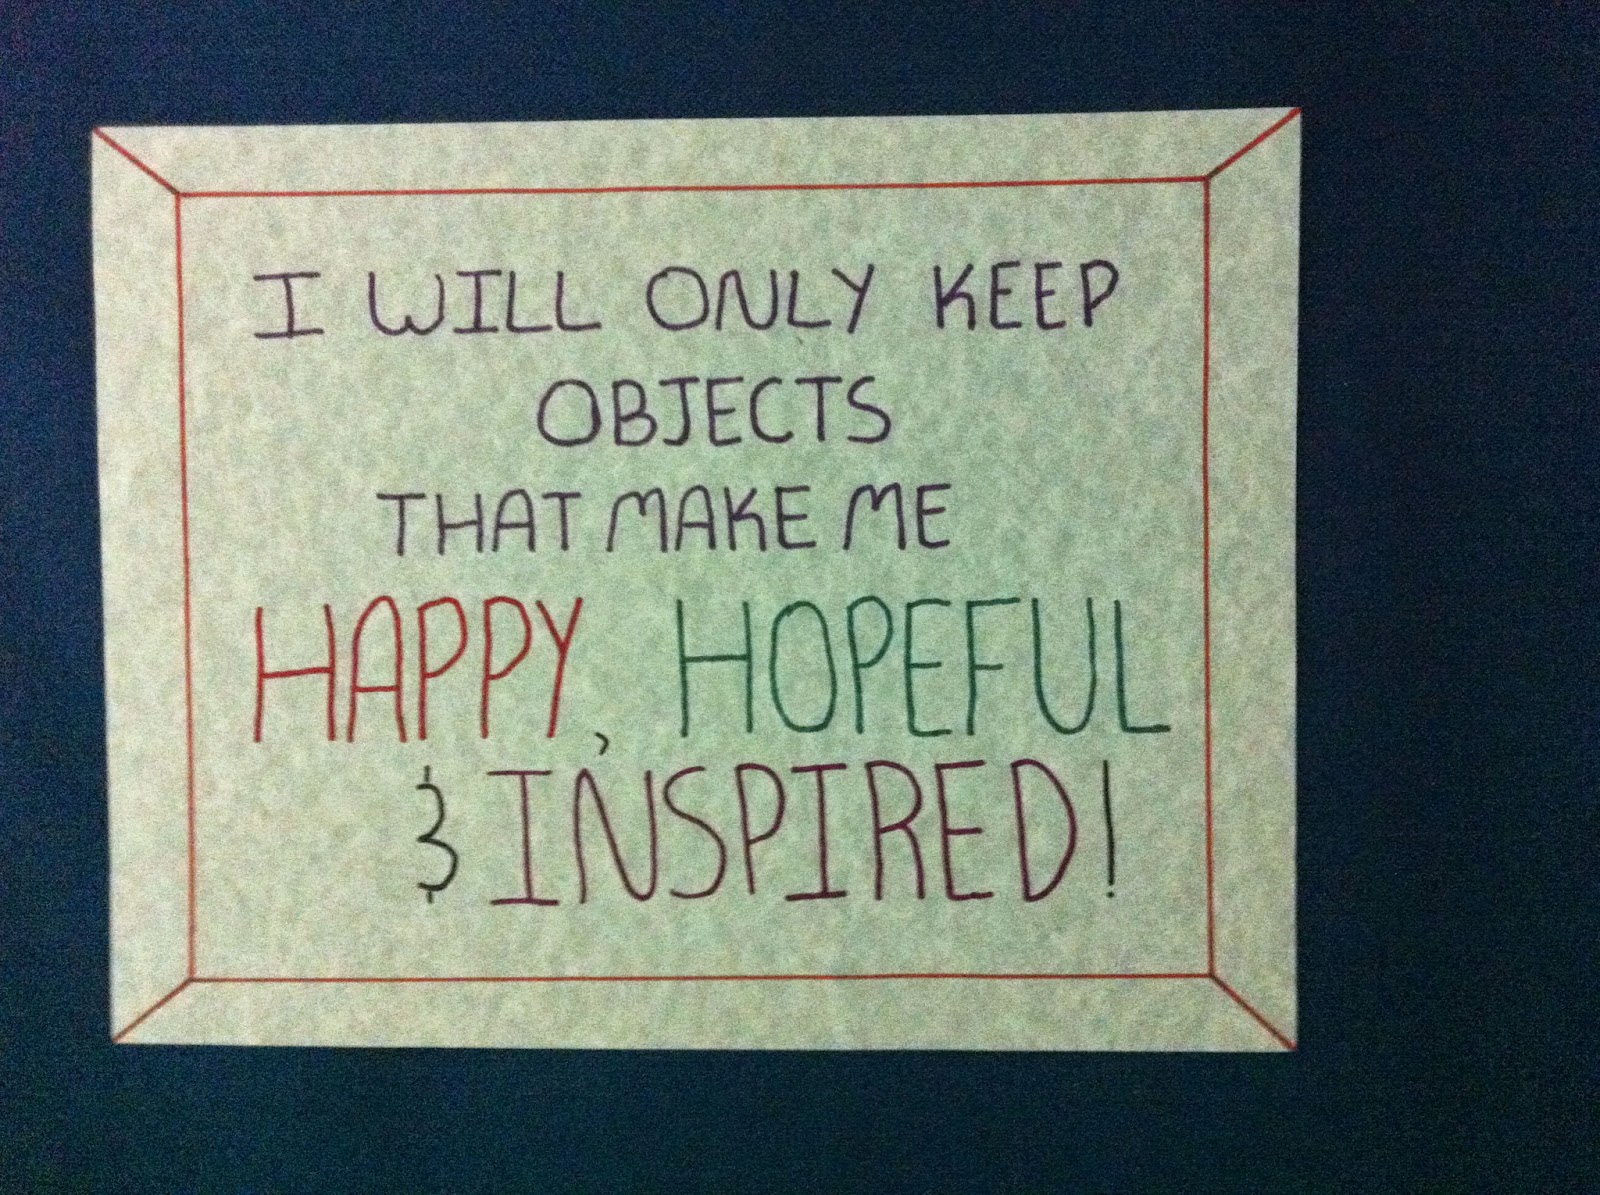 I WILL ONLY KEEP
OBJECTS
THAT MAKE ME
HAPPY, HOPEFUL
& INSPIRED!